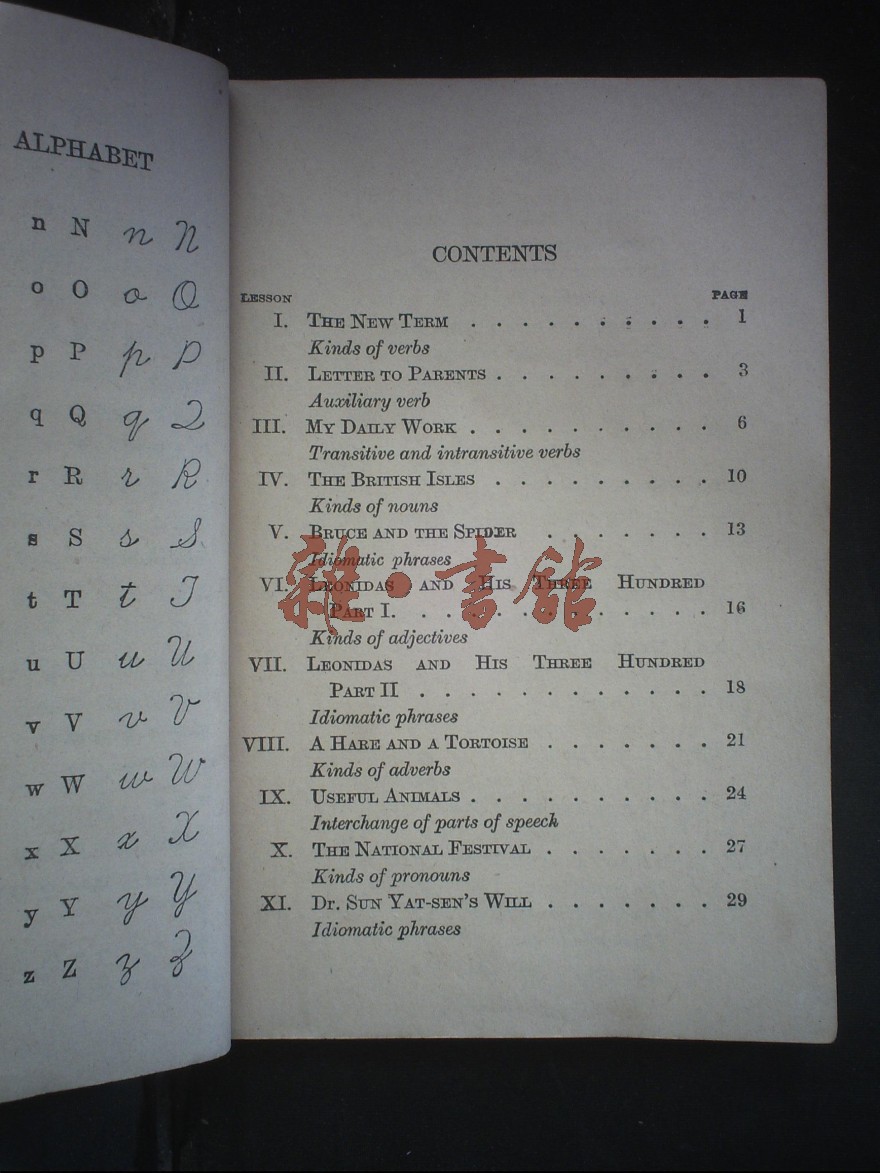 ALPHABET
n N n N
o O o O
p P p P
q Q q Q
r R r R
s S s S
t T t T
u U u U
v V v V
w W w W
x X x X
y Y y Y
z Z z Z
CONTENTS
LESSON PAGE
I. THE NEW TERM . . . . . . . . . . 1
Kinds of verbs
II. LETTER TO PARENTS . . . . . . . . . 3
Auxiliary verb
III. MY DAILY WORK . . . . . . . . . . 6
Transitive and intransitive verbs
IV. THE BRITISH ISLES . . . . . . . . . 10
Kinds of nouns
V. BRUCE AND THE SPIDER . . . . . . . 13
Idiomatic phrases
VI. LEONIDAS AND HIS THREE HUNDRED
PART I. . . . . . . . . . . . . 16
Kinds of adjectives
VII. LEONIDAS AND HIS THREE HUNDRED
PART II . . . . . . . . . . . . 18
Idiomatic phrases
VIII. A HARE AND A TORTOISE . . . . . . . 21
Kinds of adverbs
IX. USEFUL ANIMALS . . . . . . . . . . 24
Interchange of parts of speech
X. THE NATIONAL FESTIVAL . . . . . . . 27
Kinds of pronouns
XI. DR. SUN YAT-SEN'S WILL . . . . . . . 29
Idiomatic phrases
雜·書館